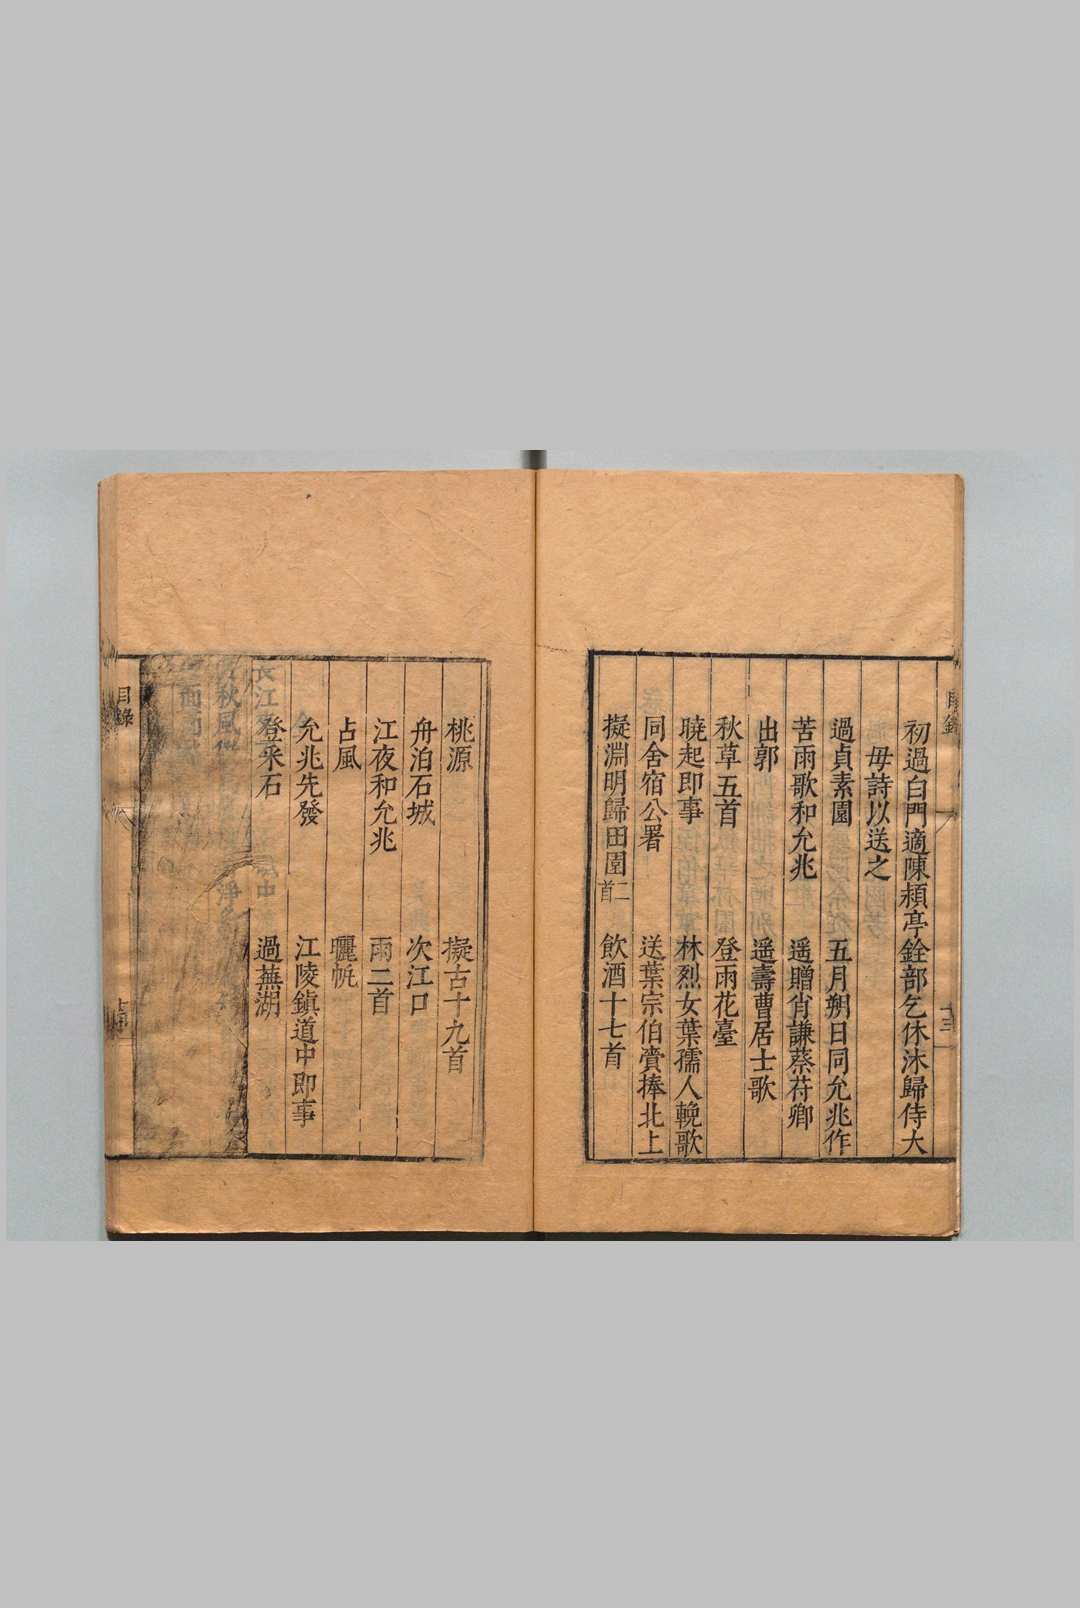 目錄
十三
初過白門適陳頴亭銓部乞休沐歸侍大
母詩以送之
過貞素園　五月朔日同允兆作
苦雨歌和允兆　遥贈肖謙蔡苻卿
出郭　遥壽曹居士歌
秋草五首　登雨花臺
曉起即事　林烈女葉孺人輓歌
同舍宿公署　送葉宗伯賫捧北上
擬淵明歸田園二首　飲酒十七首
桃源　擬古十九首
舟泊石城　次江口
江夜和允兆　雨二首
占風　曬帆
允兆先發　江陵鎮道中即事
登采石　過蕪湖
長江
秋風
目錄